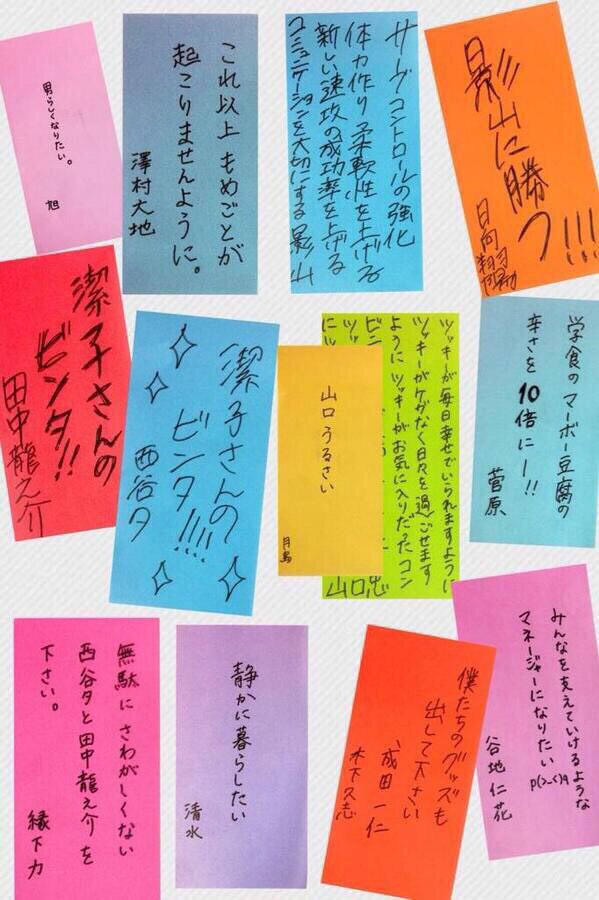 男らしくなりたい。
旭
これ以上 もめごとが
起こりませんように。
澤村大地
サーブコントロールの強化
体力作り 柔軟性を上げる
新しい速攻の成功率を上げる
コミュニケーションを大切にする 影山
影山に勝つ!!!
日向翔陽
潔子さんの
ビンタ!!
田中龍之介
潔子さんの
ビンタ!!!!
西谷夕
山口 うるさい
月島
ツッキーが毎日幸せでいられますように
ツッキーがケガなく日々を過ごせます
ように ツッキーがお気に入りだったコン
山口忠
学食の マーボー豆腐の
辛さを 10倍にー!!
菅原
無駄に さわがしくない
西谷夕と田中龍之介 を
下さい。
縁下力
静かに暮らしたい
清水
僕たちのグッズも
出して下さい
成田一仁
木下久志
みんなを支えていけるような
マネージャーになりたい
谷地仁花